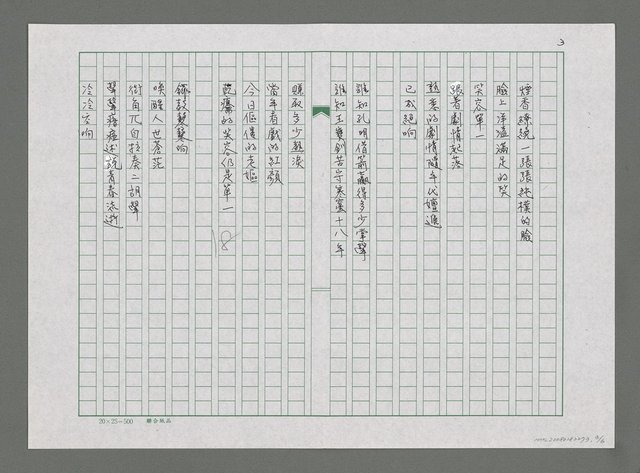 3
煙香繚繞一張張純樸的臉
臉上洋溢滿足的笑
笑容單一
張著劇情起落
熟悉的劇情隨年代嬗進
已成絕响
誰知孔明借箭贏得多少掌聲
誰知王寶釧苦守寒窯十八年
賺取多少熱淚
當年看戲的紅顏
今日傴僂的老嫗
乾癟的笑容仍是單一
18
鑼鼓聲聲响
喚醒人世蒼茫
街角兀自拉奏二胡聲
聲聲瘖瘂述說青春流逝
冷冷哀响
20×25=500 聯合紙品